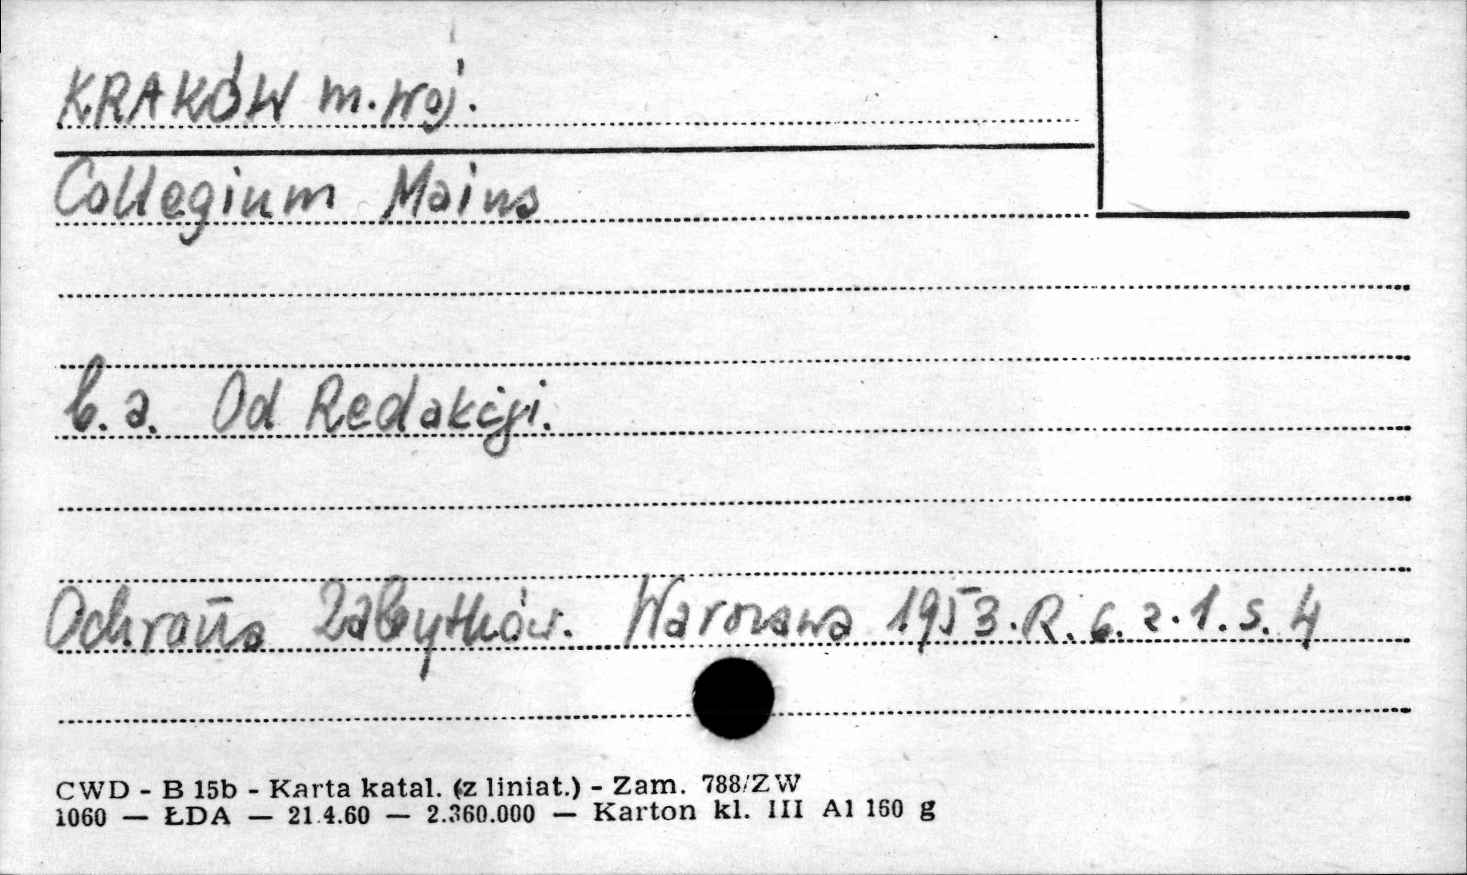 KRAKÓW m. woj.
Collegium Maius
b. a. Od Redakcji.
Ochrona Zabytków. Warszawa 1953. R. 6. z. 1. s. 4
CWD - B 15b - Karta katal. (z liniat.) - Zam. 788/ZW
1060 — ŁDA — 21.4.60 — 2.360.000 — Karton kl. III A1 160 g